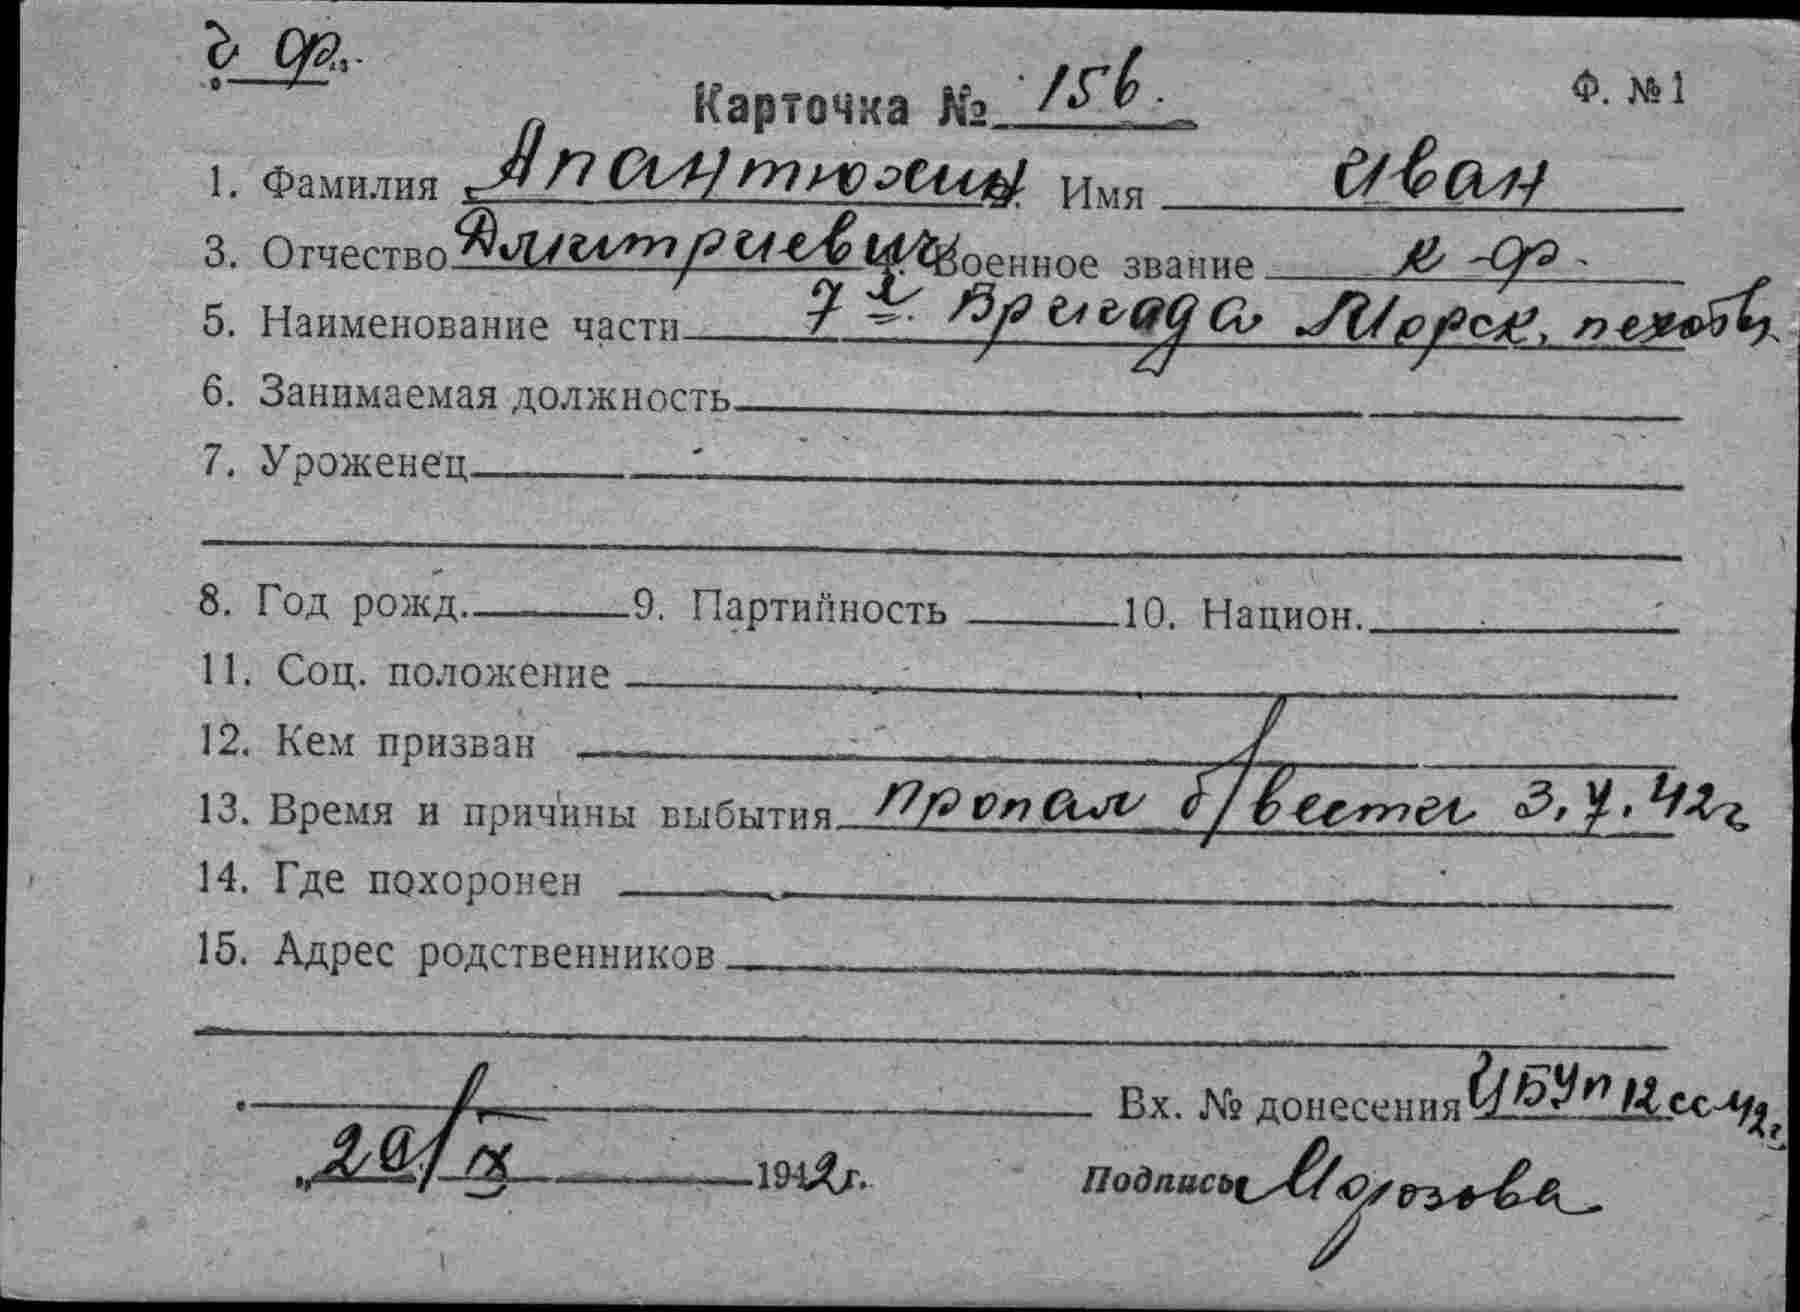 ч ф.
Карточка № 156.
Ф. №1
1. Фамилия Апантюхин Имя Иван
3. Отчество Дмитриевич Военное звание к-ф.
5. Наименование части 7я Бригада Морск. пехоты
6. Занимаемая должность
7. Уроженец
8. Год рожд. 9. Партийность 10. Национ.
11. Соц. положение
12. Кем призван
13. Время и причины выбытия Пропал б/вести 3.7.42г
14. Где похоронен
15. Адрес родственников
Вх. № донесения ЦБУп 12сс-42г.
„20/IX 1942г.
Подпись Морозова